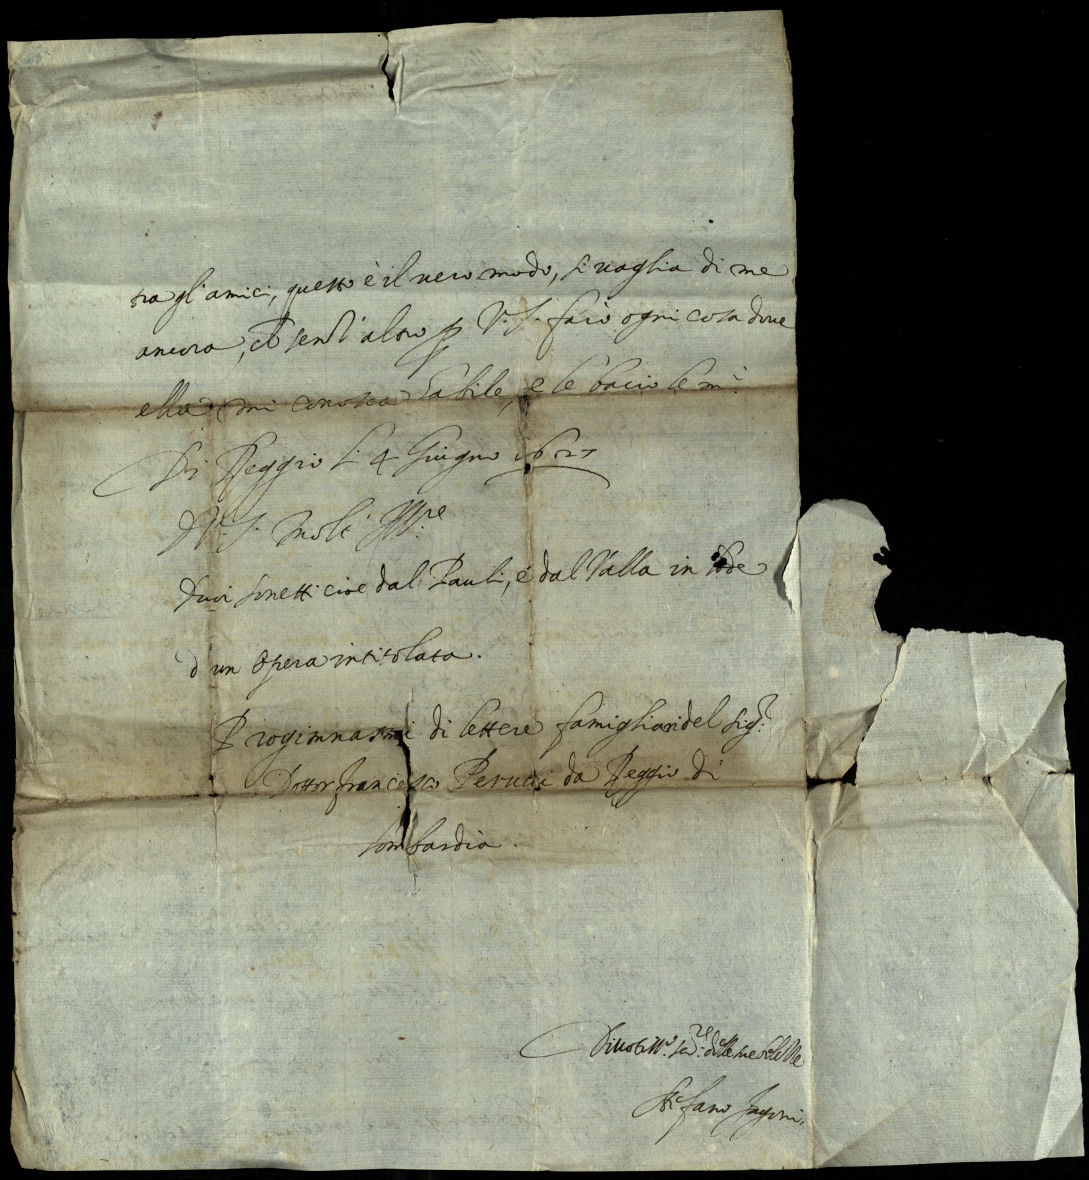 tra gl'amici, questo è il vero modo, si vaglia di me
ancora, ch senz'altro p V. S. farò ogni cosa dove
ella mi conosca habile, e le bacio le m.
Di Reggio li 4 Giugno 1627
Di V. S. molt' Ill.re
Duoi sonetti cioè dal Pauli, e dal Valla in lode
d'un opera intitolata.
Progimnasmi di lettere famigliari del Sig.r
Dottor francesco Perucci da Reggio di
lombardia.
ser.re
Stefano